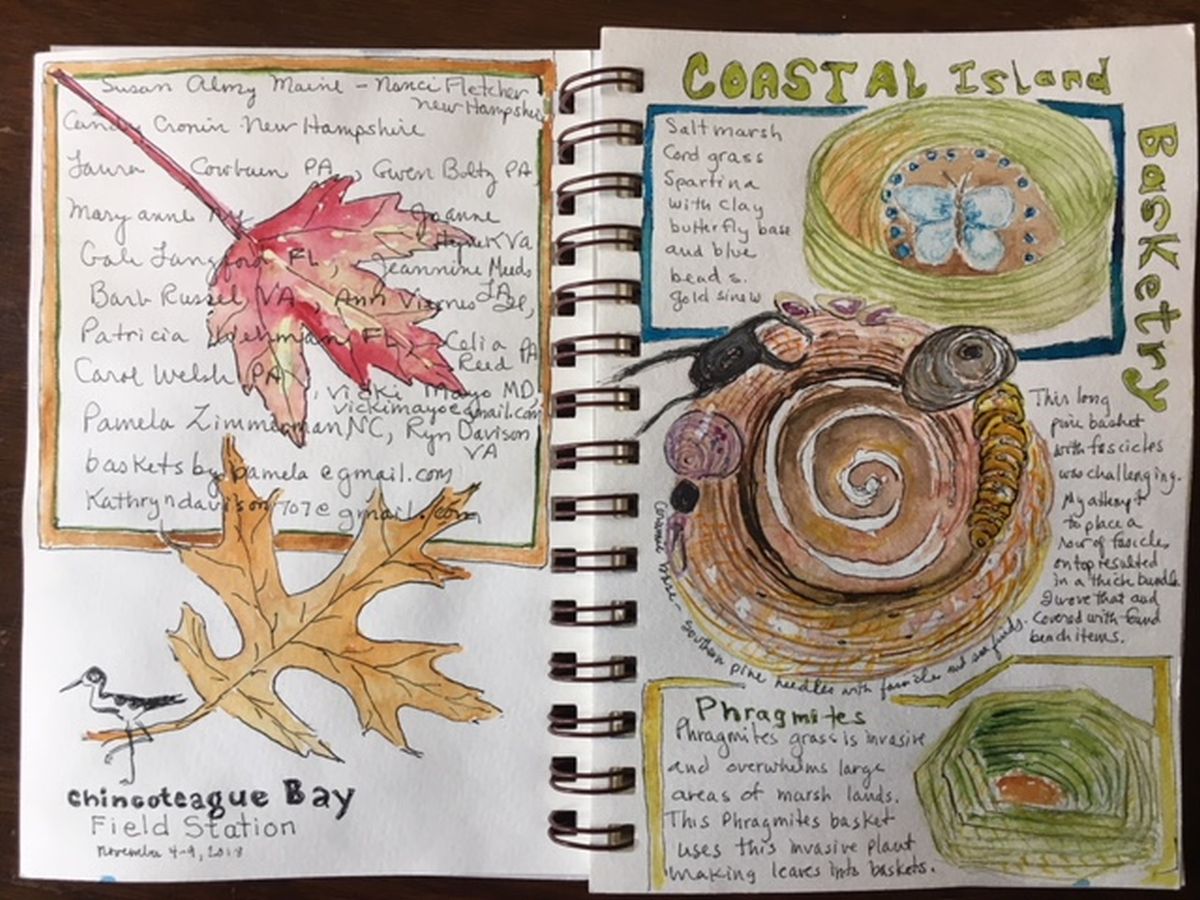 Susan Almy Maine - Nanci Fletcher
New Hampshire
Candy Cronin New Hampshire
Laura Cowburn PA, Gwen Boltz PA,
Mary anne NY Joanne
VA
Gale Langford FL, Jeannine Meeds
Barb Russel VA, Ann
Patricia Wehman, FL, Celia
Reed PA
Carol Welsh PA, Vicki Mayo MD,
vickimayo@gmail.com
Pamela Zimmerman NC, Ryn Davison
VA
baskets by pamela @gmail.com
Kathryndavison707@gmail.com
chincoteague Bay
Field Station
November 4-9, 2018
COASTAL Island
Basketry
Salt marsh
Cord grass
Spartina
with clay
butterfly base
and blue
beads.
gold sinew
This long
pine basket
with fascicles
was challenging.
My attempt
to place a
row of fascicles
on top resulted
in a thick bundle.
I wove that and
covered with found
beach items.
Ceramic base - Southern pine needles with fascicles and sea finds.
Phragmites
Phragmites grass is invasive
and overwhelms large
areas of marsh lands.
This Phragmites basket
uses this invasive plant
making leaves into baskets.